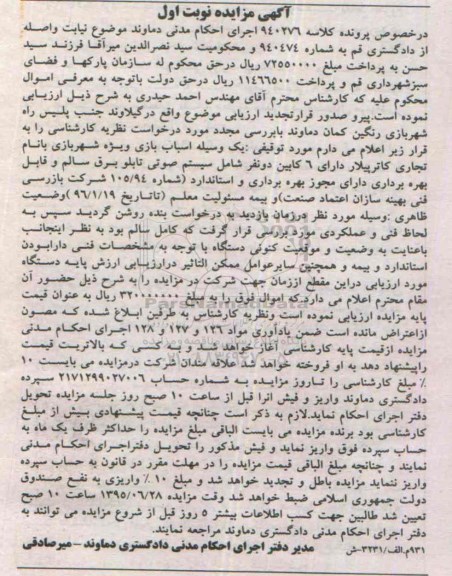 آگهی مزایده نوبت اول
درخصوص پرونده کلاسه ۹۴۰۲۷۶ اجرای احکام مدنی دماوند موضوع نیابت واصله
از دادگستری قم به شماره ۹۴۰۴۷۴ و محکومیت سید نصرالدین میرآقا فرزند سید
حسن به پرداخت مبلغ ۷۲۵۵۰۰۰۰ ریال درحق محکوم له سازمان پارکها و فضای
سبزشهرداری قم و پرداخت ۱۱۴۶۶۵۰۰ ریال درحق دولت باتوجه به معرفی اموال
محکوم علیه که کارشناس محترم آقای مهندس احمد حیدری به شرح ذیل ارزیابی
نموده است.پیرو صدور قرارتجدید ارزیابی موضوع واقع درگیلاوند جنب پلیس راه
شهربازی رنگین کمان دماوند بابررسی مجدد مورد درخواست نظریه کارشناسی را به
قرار زیر اعلام می دارم مورد توقیفی :یک وسیله اسباب بازی ویژه شهربازی بانام
تجاری کاترپیلار دارای ۶ کابین دونفر شامل سیستم صوتی تابلو برق سالم و قابل
بهره برداری دارای مجوز بهره برداری و استاندارد (شماره ۱۰۵/۹۴ شرکت بازرسی
فنی بهینه سازان اعتماد صنعت)و بیمه مسئولیت معلم (تاتاریخ ۹۶/۱/۱۹ )وضعیت
ظاهری :وسیله مورد نظر درزمان بازدید به درخواست بنده روشن گردید سپس به
لحاظ فنی و عملکردی مورد بررسی قرار گرفت که کامل سالم بود به نظر اینجانب
باعنایت به وضعیت و موقعیت کنونی دستگاه با توجه به مشخصات فنی دارابودن
استاندارد و بیمه و همچنین سایرعوامل ممکن التاثیر درارزیابی ارزش پایه دستگاه
مورد ارزیابی دراین مقطع اززمان جهت شرکت در مزایده را به شرح ذیل حضور آن
مقام محترم اعلام می دارد.که اموال فوق را به مبلغ ریال به عنوان قیمت
پایه مزایده ارزیابی نموده است ونظریه کارشناس به طرفین ابلاغ شده که مصون
ازاعتراض مانده است ضمن یادآوری مواد ۱۲۶ و ۱۲۷ و ۱۲۸ اجرای احکام مدنی
مزایده ازقیمت پایه کارشناسی آغاز خواهد شد و به کسی که بالاتریت قیمت
راپیشنهاد دهد به او فروخته خواهد شد علاقه مندان شرکت درمزایده می بایست ۱۰
٪ مبلغ کارشناسی را تاروز مزایده به شماره حساب ۲۱۷۱۲۹۹۰۲۷۰۰۶ سپرده
دادگستری دماوند واریز و فیش انرا قبل از ساعت ۱۰ صبح روز جلسه مزایده تحویل
دفتر اجرای احکام نماید.لازم به ذکر است چنانچه قیمت پیشنهادی بیش از مبلغ
کارشناسی بود برنده مزایده می بایست الباقی مبلغ مزایده را حداکثر ظرف یک ماه به
حساب سپرده فوق واریز نماید و فیش مذکور را تحویل دفتراجرای احکام مدنی
نمایند و چنانچه مبلغ الباقی قیمت مزایده را در مهلت مقرر در قانون به حساب سپرده
واریز ننماید مزایده باطل و تجدید خواهد شد و مبلغ ۱۰ ٪ واریزی به نفع صندوق
دولت جمهوری اسلامی ضبط خواهد شد وقت مزایده ۱۳۹۵/۰۶/۲۸ ساعت ۱۰ صبح
تعیین شد طالبین جهت کسب اطلاعات بیشتر ۵ روز قبل از شروع مزایده می توانند به
دفتر اجرای احکام مدنی دادگستری دماوند مراجعه نمایند.
۹۳۱م.الف/۳۲۳۱-ش مدیر دفتر اجرای احکام مدنی دادگستری دماوند -میرصادقی